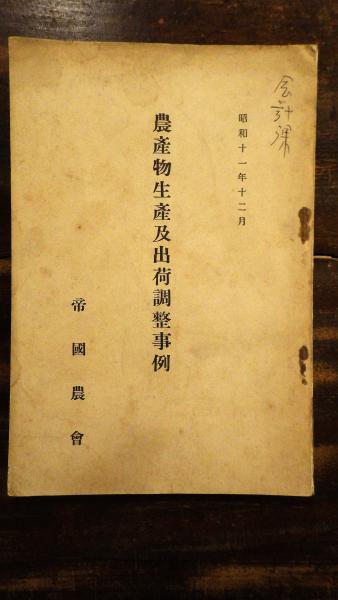 会計課
昭和十一年十二月
農產物生產及出荷調整事例
帝國農會